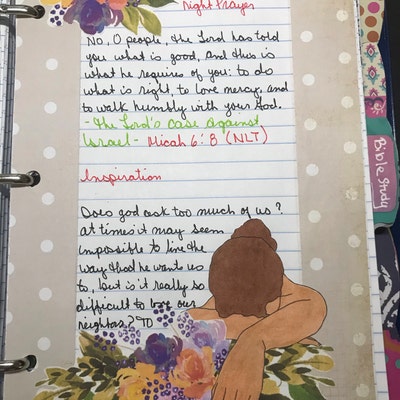 Night Prayer
No, O people, the Lord has told
you what is good, and this is
what he requires of you: to do
what is right, to love mercy, and
to walk humbly with your God.
- The Lord's case Against
Israel - Micah 6:8 (NLT)
Inspiration
Does god ask too much of us?
at times it may seem
impossible to live the
way that he wants us
to, but is it really so
difficult to love our
neighbors? To
Bible Study